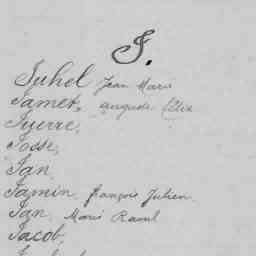 J.
Juhel Jean Marie
Jamet, Auguste Félix
Jujerre,
Josse,
Jan,
Jamin, François Julien
Jan, Marie Raoul
Jacob,